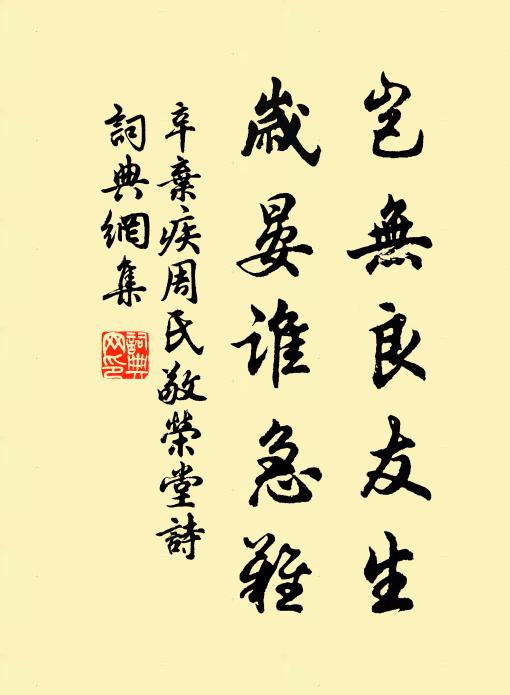 豈無良友生
歲晏誰急難
辛棄疾周氏敬榮堂詩
詞典網集
詞典
網印